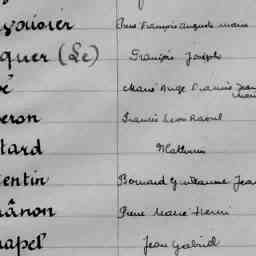 Pierre François auguste marie
quer (Le) François Joseph
é Marie Ange Francis Jean
Marie
eron Francis Leon Raoul
tard Mathurin
entin Bernard Guillaume Jean
ânon Pierre Marie Henri
hapel Jean Gabriel